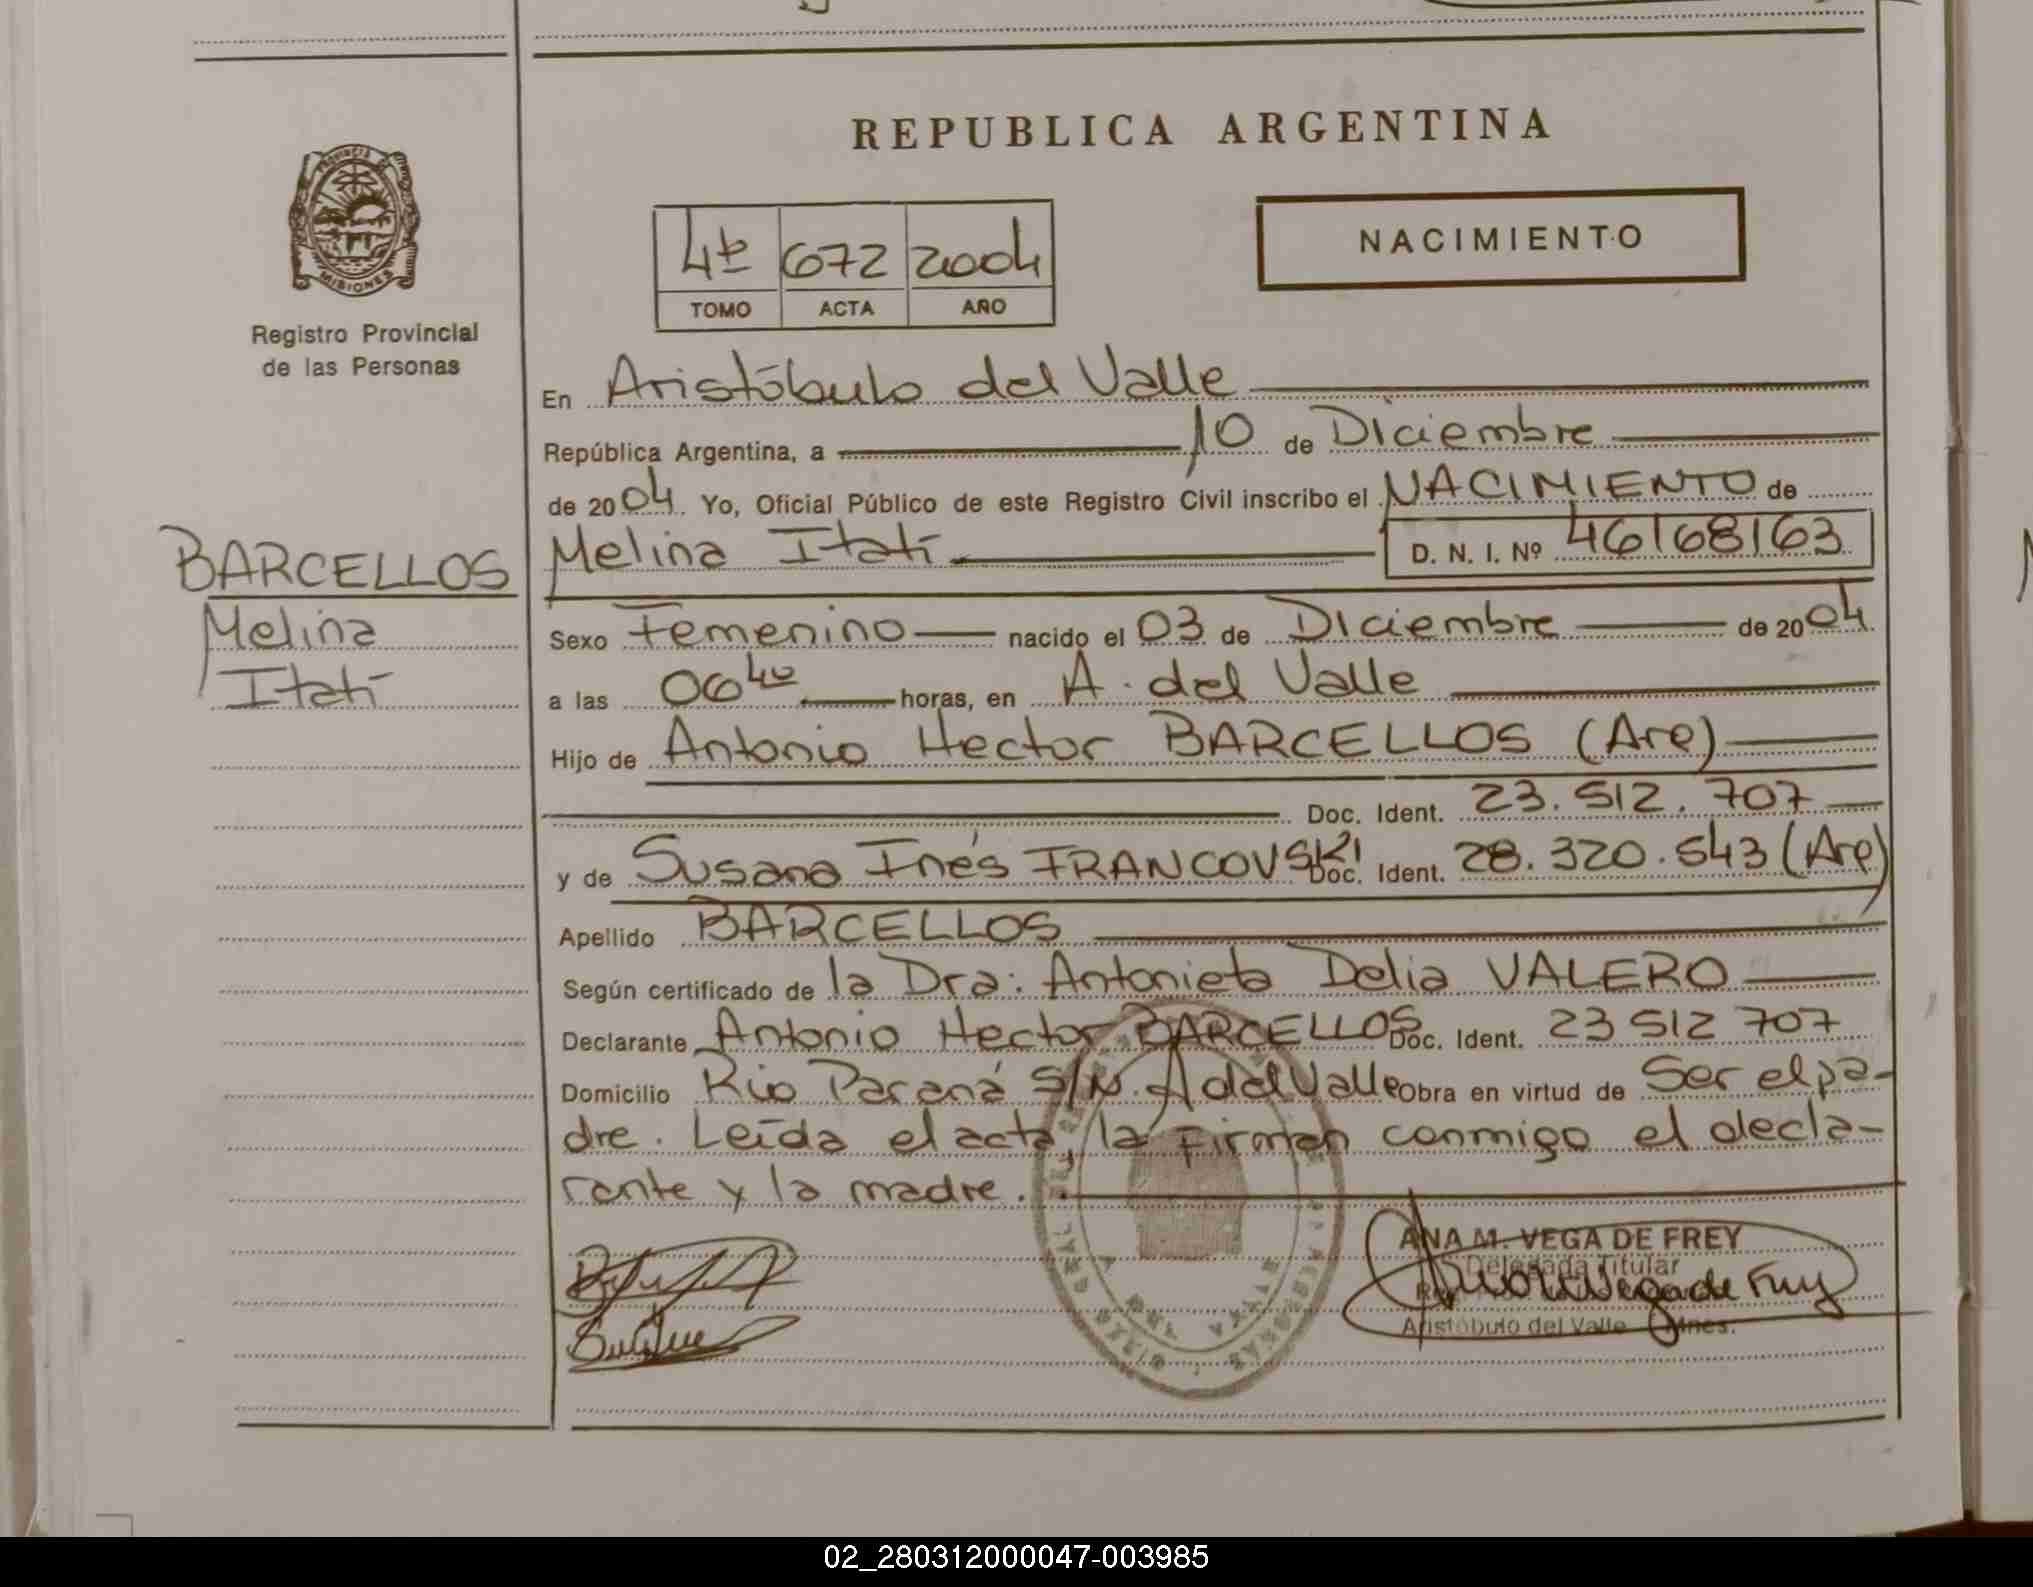 REPUBLICA ARGENTINA
PROVINCIA DE
MISIONES
Registro Provincial
de las Personas
4to 672 2004
TOMO ACTA AÑO
NACIMIENTO
En Aristóbulo del Valle
República Argentina, a 10 de Diciembre
de 2004 Yo, Oficial Público de este Registro Civil inscribo el NACIMIENTO de
BARCELLOS
Melina
Itatí
Melina Itatí D. N. I. Nº 46168163
Sexo Femenino nacido el 03 de Diciembre de 2004
a las 06 40 horas, en A. del Valle
Hijo de Antonio Hector BARCELLOS (Are)
Doc. Ident. 23.512.707
y de Susana Inés FRANCOVSKI Doc. Ident. 28.320.543 (Are)
Apellido BARCELLOS
Según certificado de la Dra: Antonieta Delia VALERO
Declarante Antonio Hector BARCELLOS Doc. Ident. 23 512 707
Domicilio Rio Paraná S/N. A del Valle Obra en virtud de Ser el pa-
dre. Leída el acta, la firman conmigo el decla-
rante y la madre.
ANA M. VEGA DE FREY
Delegada Titular
Aristóbulo del Valle Mnes.
02_280312000047-003985